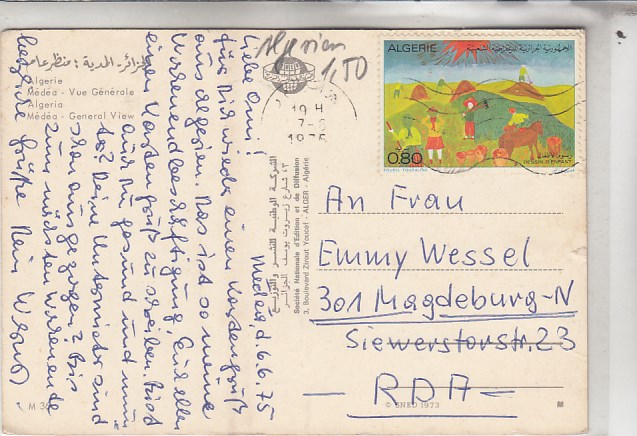 الجزائر - المدية : منظر عام
Algérie
Médéa - Vue Générale
Algeria
Médéa - General View
Algerien
1,50
19 H
7-6
1975
ALGERIE
الجمهورية الجزائرية الديمقراطية الشعبية
0,80
رسوم الأطفال
DESSIN D'ENFANT
Medea, d. 6.6.75
Liebe Omi!
für Dich wieder einen Kartengruß
aus Algerien. Das ist so meine
Wochenendbeschäftigung, Euch allen
einen Kartengruß zu schreiben. Bist
auch Du gesund und mun
ter? Deine Untermieter sind
schon ausgezogen? Bis
zum nächsten Wochenende
herzliche Grüße Dein
الشركة الوطنية للنشر والتوزيع
٣، شارع زيروت يوسف الجزائر
Société Nationale d'Edition et de Diffusion
3, Boulevard Zirout Youcef - ALGER - Algérie
An Frau
Emmy Wessel
301 Magdeburg-N
Siewertorstr. 23
- RDA -
© SNED 1973
M 30